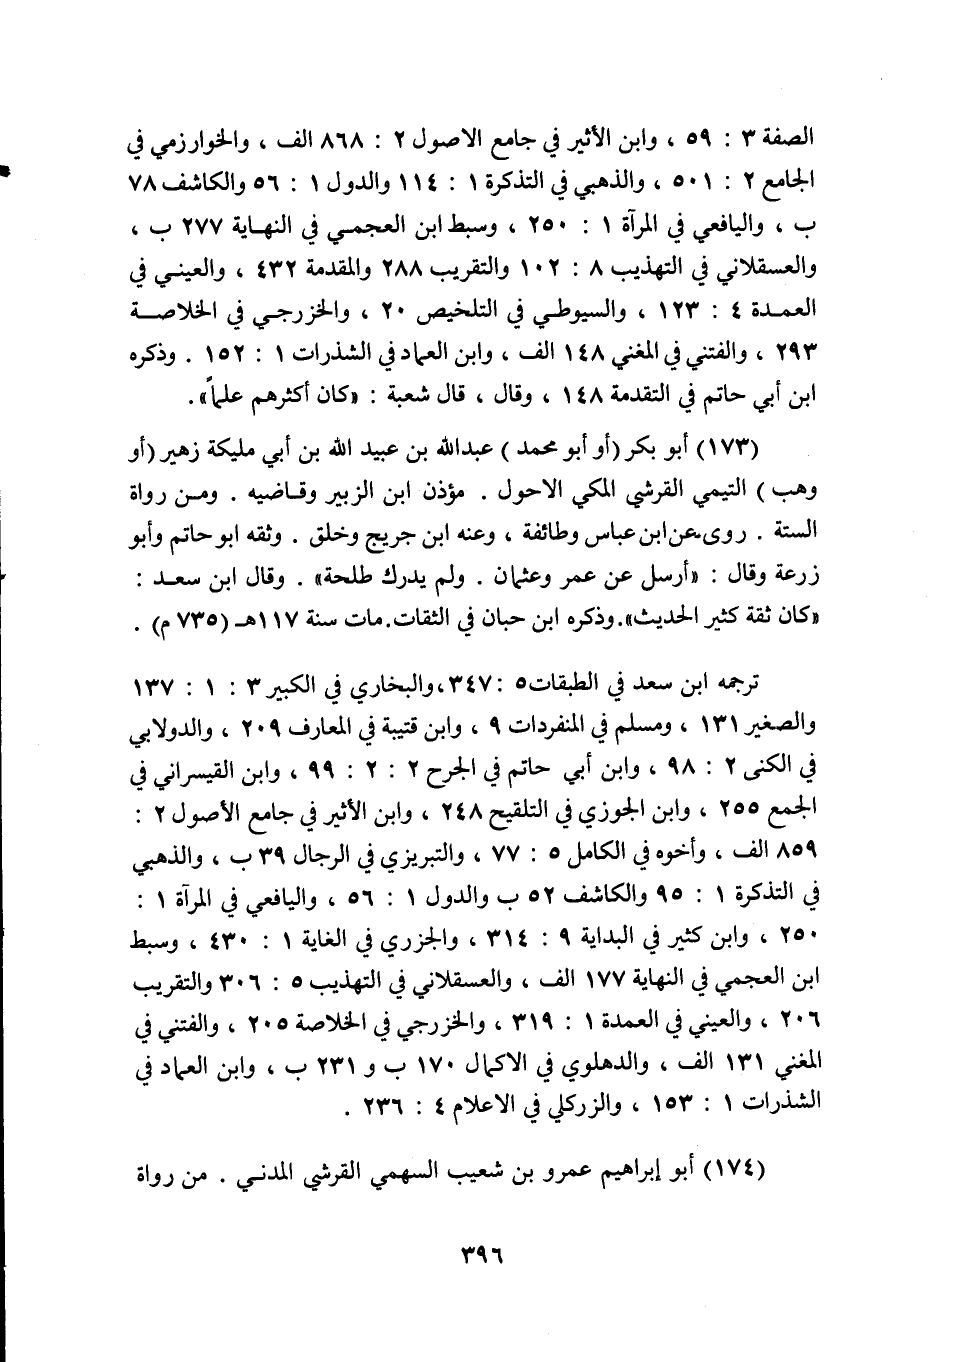 الصفة ٣ : ٥٩ ، وابن الأثير في جامع الاصول ٢ : ٨٦٨ الف ، والخوارزمي في
الجامع ٢ : ٥٠١ ، والذهبي في التذكرة ١ : ١١٤ والدول ١ : ٥٦ والكاشف ٧٨
ب ، واليافعي في المرآة ١ : ٢٥٠ ، وسبط ابن العجمي في النهاية ٢٧٧ ب ،
والعسقلاني في التهذيب ٨ : ١٠٢ والتقريب ٢٨٨ والمقدمة ٤٣٢ ، والعيني في
العمدة ٤ : ١٢٣ ، والسيوطي في التلخيص ٢٠ ، والخزرجي في الخلاصة
٢٩٣ ، والفتني في المغني ١٤٨ الف ، وابن العماد في الشذرات ١ : ١٥٢ . وذكره
ابن أبي حاتم في التقدمة ١٤٨ ، وقال ، قال شعبة : «كان أكثرهم علماً».
(١٧٣) أبو بكر (أو أبو محمد) عبدالله بن عبيد الله بن أبي مليكة زهير (أو
وهب) التيمي القرشي المكي الاحول . مؤذن ابن الزبير وقاضيه . ومن رواة
الستة . روى عن ابن عباس وطائفة ، وعنه ابن جريج وخلق . وثقه ابو حاتم وأبو
زرعة وقال : «أرسل عن عمر وعثمان . ولم يدرك طلحة» . وقال ابن سعد :
«كان ثقة كثير الحديث». وذكره ابن حبان في الثقات. مات سنة ١١٧هـ (٧٣٥ م) .
ترجمه ابن سعد في الطبقات ٥ : ٣٤٧، والبخاري في الكبير ٣ : ١ : ١٣٧
والصغير ١٣١ ، ومسلم في المنفردات ٩ ، وابن قتيبة في المعارف ٢٠٩ ، والدولابي
في الكنى ٢ : ٩٨ ، وابن أبي حاتم في الجرح ٢ : ٢ : ٩٩ ، وابن القيسراني في
الجمع ٢٥٥ ، وابن الجوزي في التلقيح ٢٤٨ ، وابن الأثير في جامع الأصول ٢ :
٨٥٩ الف ، وأخوه في الكامل ٥ : ٧٧ ، والتبريزي في الرجال ٣٩ ب ، والذهبي
في التذكرة ١ : ٩٥ والكاشف ٥٢ ب والدول ١ : ٥٦ ، واليافعي في المرآة ١ :
٢٥٠ ، وابن كثير في البداية ٩ : ٣١٤ ، والجزري في الغاية ١ : ٤٣٠ ، وسبط
ابن العجمي في النهاية ١٧٧ الف ، والعسقلاني في التهذيب ٥ : ٣٠٦ والتقريب
٢٠٦ ، والعيني في العمدة ١ : ٣١٩ ، والخزرجي في الخلاصة ٢٠٥ ، والفتني في
المغني ١٣١ الف ، والدهلوي في الاكمال ١٧٠ ب و ٢٣١ ب ، وابن العماد في
الشذرات ١ : ١٥٣ ، والزركلي في الاعلام ٤ : ٢٣٦ .
(١٧٤) أبو إبراهيم عمرو بن شعيب السهمي القرشي المدني . من رواة
٣٩٦